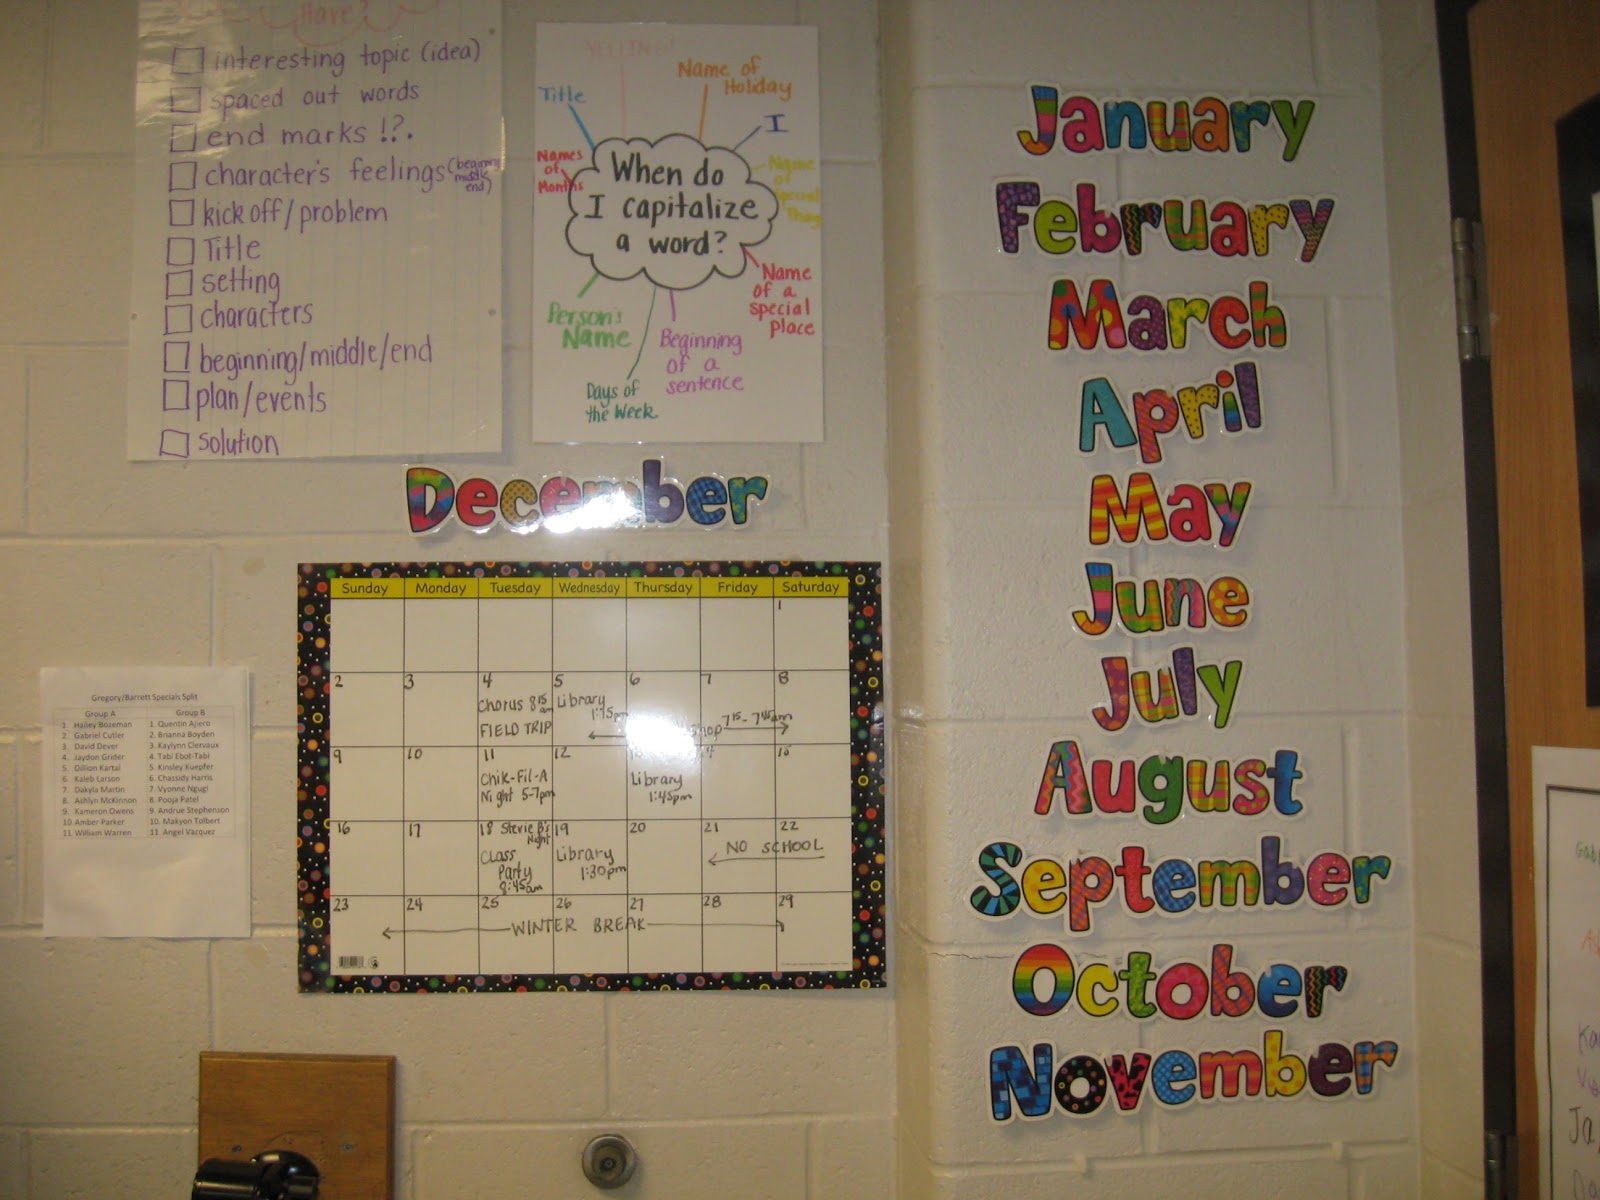 Have?
interesting topic (idea)
spaced out words
end marks !?.
character's feelings (beginning
middle
end)
kick off/problem
Title
setting
characters
beginning/middle/end
plan/events
solution
When do
I capitalize
a word?
Title
Name of
Holiday
I
Names
of
Months
Name
of
Special
Thing
Name
of a
special
place
Persons
Name
Beginning
of a
sentence
Days of
the Week
December
Sunday Monday Tuesday Wednesday Thursday Friday Saturday
1
2 3 4 5 6 7 8
Chorus 8:15 am
FIELD TRIP
Library
1:15pm
7:15 - 7:45am
9 10 11 12 13 14 15
Chik-Fil-A
Night 5-7pm
Library
1:45pm
16 17 18 19 20 21 22
Stevie B's
Night
Class
Party
8:45am
Library
1:30pm
NO SCHOOL
23 24 25 26 27 28 29
WINTER BREAK
Gregory/Barrett Specials Split
Group A
1. Hailey Bozeman
2. Gabriel Cutler
3. David Dever
4. Jaydon Grider
5. Dillion Kartal
6. Kaleb Larson
7. Dakyla Martin
8. Ashlyn McKinnon
9. Kameron Owens
10. Amber Parker
11. William Warren
Group B
1. Quentin Ajiero
2. Brianna Boyden
3. Kaylynn Clervaux
4. Tabi Ebot-Tabi
5. Kinsley Kuepfer
6. Chassidy Harris
7. Vyonne Ngugi
8. Pooja Patel
9. Andrue Stephenson
10. Makyon Tolbert
11. Angel Vazquez
January
February
March
April
May
June
July
August
September
October
November